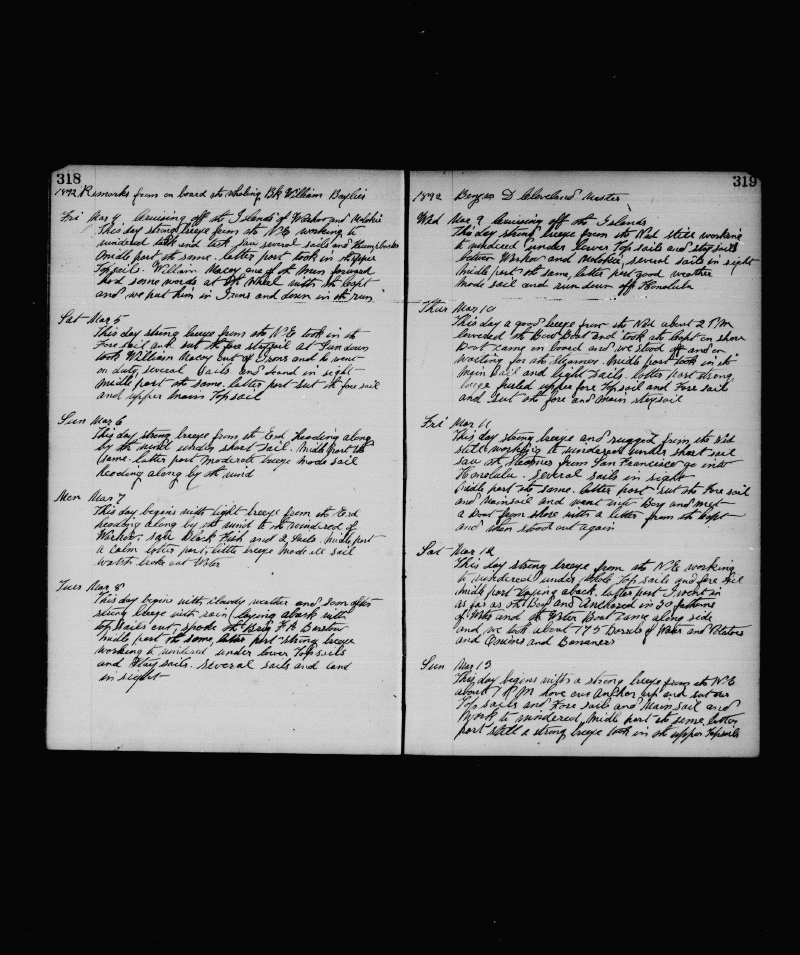 318
1892 Remarks from on board the whaling Bk William Baylies
Fri Mar 4 Cruising off the Islands of Warhoo and Molokie
This day strong breeze from the NE working to
windered tack and tack saw several sails and Humpbacks
Midle part the same. latter part took in the upper
Topsails. William Macey one of the Men forward
had some words at the Wheel with the Capt
and we put him in Irons and down in the run
Sat Mar 5
This day strong breeze from the N.E took in the
Fore sail and sut the fore staysail at Sundown
took William Macey out of Irons and he went
on duty, several Sails and Land in sight
Midle part the same. latter part sut the fore sail
and upper main Topsail
Sun Mar 6
This day strong breeze from the End heading along
by the wind under short sail. Midle part the
same. latter part moderate breeze made sail
heading along by the wind
Mon Mar 7
This day begins with light breeze from the End
heading along by the wind to the windered of
Warhoo, saw Black Fish and 2 Sails. Midle part
a calm latter part, little breeze made all sail
watch look out Water
Tues Mar 8
This day begins with cloudy weather and soon after
strong breeze with rain laying aback with
top sails out, spoke the Brig F A Barstow
Midle part the same, latter part strong breeze
working to windered under lower Top sails
and Stay sails. several sails and land
in sight
319
1892 Benj D Cleveland Master
Wed Mar 9 Cruising off the Islands
This day strong breeze from the Nd still working
to windered under lower Top sails and stay sails
between Warhoo and Molokie, several sails in sight
Midle part the same, latter part good weather
made sail and run down off Honolulu
Thus Mar 10
This day a good breeze from the Nd about 2 P.M
lowered the Bow Boat and took the Capt on shore
Boat came on board and we stood off and on
waiting for the Steamer. Midle part took in the
Main Sail and light Sails. latter part strong
breeze furled upper fore Topsail and Fore sail
and Sut the fore and Main staysail
Fri Mar 11
This day strong breeze and rugged from the Nd
still working to windered under short sail
saw the Steamer from San Francisco go into
Honolulu. Several sails in sight
Midle part the same. latter part sut the Fore sail
and Mainsail and went into Bay and met
a boat from shore with a letter from the Capt
and then stood out again
Sat Mar 12
This day strong breeze from the N.E working
to windered under whole Top sails and fore sail
Midle part laying aback. latter part I went in
as far as the Bay and Anchored in 30 fathoms
of Water and the Water Boat came along side
and we took about 175 Barrels of Water and Potatoes
and Onions and Bananers
Sun Mar 13
This day begins with a strong breeze from the N.E
about 7 P.M hove our Anchor up and sut our
Top sails and Fore sail and Main sail and
Work to windered, Midle part the same, latter
part still a strong breeze took in the upper Topsails